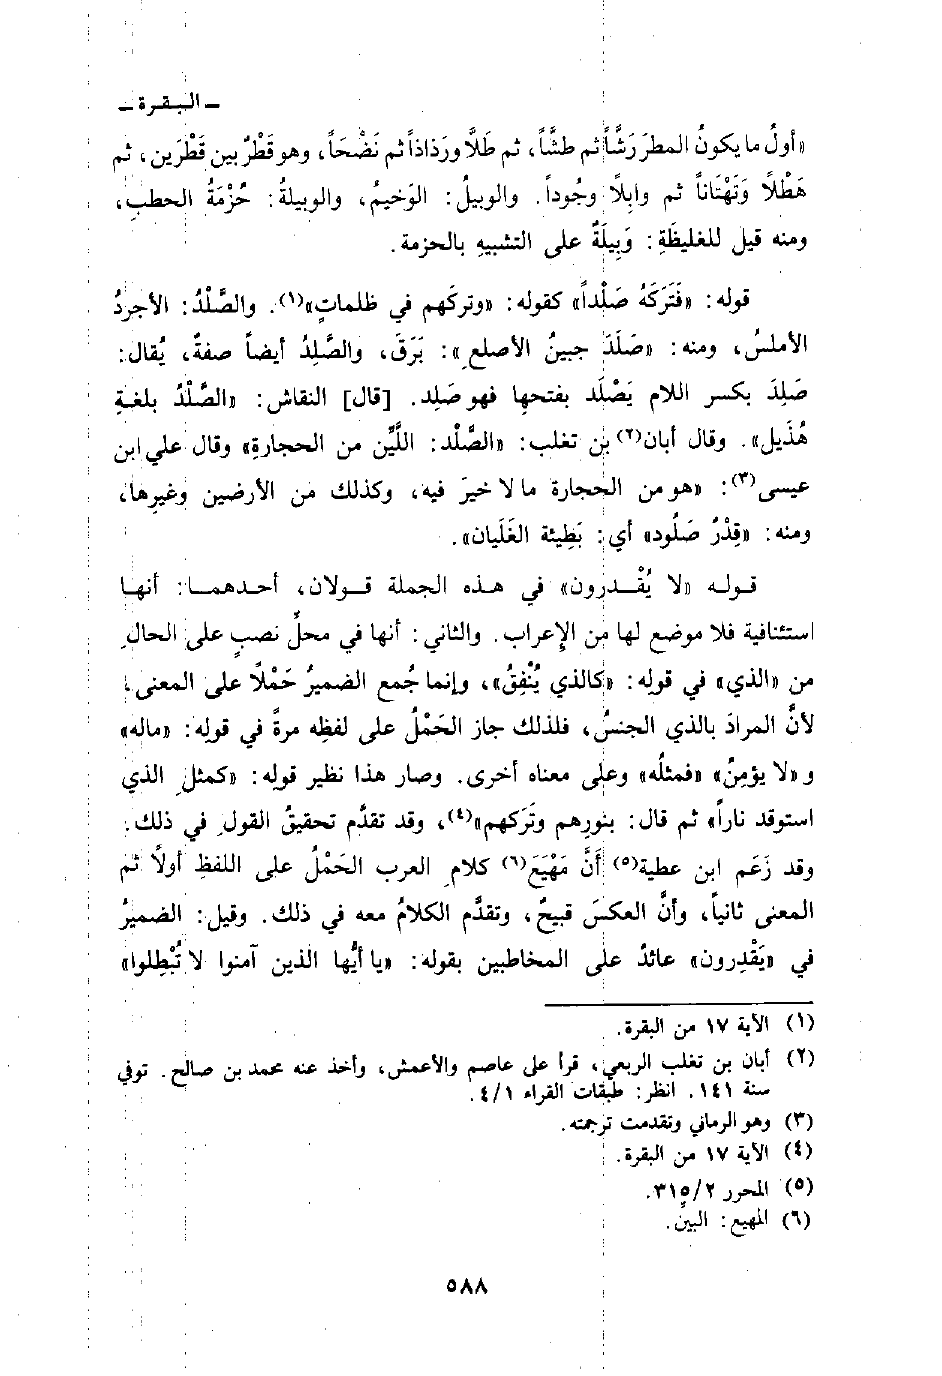 ـ البقرة ـ
«أولُ ما يكونُ المطر رَشَّاً ثم طشَّاً، ثم طَلَّا ورَذاذاً ثم نَضْحَاً، وهو قَطْرٌ بين قَطْرَين، ثم
هَطْلاً وَتَهْتاناً ثم وابِلاً وجُوداً. والوبيلُ: الوَخيمُ، والوبيلةُ: حُزْمَةُ الحطبِ،
ومنه قيل للغليظَةِ: وَبِيلَةٌ على التشبيهِ بالحزمة.
قوله: «فَتَرَكَهُ صَلْداً» كقوله: «وتركَهم في ظلماتٍ»(١). والصَّلْدُ: الأجردُ
الأملسُ، ومنه: «صَلَدَ جبينُ الأصلعِ»: بَرَقَ، والصَّلِدُ أيضاً صفةٌ، يُقال:
صَلِدَ بكسر اللام يَصْلَد بفتحِها فهو صَلِد. [قال] النقاش: «الصَّلْدُ بلغةِ
هُذَيل». وقال أبان(٢) بن تغلب: «الصَّلْد: اللَّيِّن من الحجارةِ» وقال علي ابن
عيسى(٣): «هو من الحجارة ما لا خيرَ فيه، وكذلك من الأرضين وغيرِها،
ومنه: «قِدْرٌ صَلُود» أي: بَطِيئة الغَلَيان».
قوله «لا يُقْدرون» في هذه الجملة قولان، أحدهما: أنها
استئنافية فلا موضع لها من الإِعراب. والثاني: أنها في محلِّ نصبٍ على الحالِ
من «الذي» في قولِه: «كالذي يُنْفِقُ»، وإنما جُمع الضميرُ حَمْلاً على المعنى،
لأنَّ المرادَ بالذي الجنسُ، فلذلك جاز الحَمْلُ على لفظِه مرةً في قولِه: «ماله»
و«لا يؤمِنُ» «فمثلُه» وعلى معناه أخرى. وصار هذا نظير قولِه: «كمثلِ الذي
استوقد ناراً» ثم قال: بنورِهم وتَركهم»(٤)، وقد تقدَّم تحقيقُ القولِ في ذلك.
وقد زَعَم ابن عطية(٥) أَنَّ مَهْيَعَ(٦) كلامِ العرب الحَمْلُ على اللفظِ أولاً ثم
المعنى ثانياً، وأنَّ العكسَ قبيحٌ، وتقدَّم الكلامُ معه في ذلك. وقيل: الضميرُ
في «يَقْدِرون» عائدٌ على المخاطبين بقوله: «يا أيُّها الذين آمنوا لا تُبْطِلوا»
(١) الآية ١٧ من البقرة.
(٢) أبان بن تغلب الربعي، قرأ على عاصم والأعمش، وأخذ عنه محمد بن صالح. توفي
سنة ١٤١. انظر: طبقات القراء ٤/١.
(٣) وهو الرماني وتقدمت ترجمته.
(٤) الآية ١٧ من البقرة.
(٥) المحرر ٣١٥/٢.
(٦) المهيع: البيِّن.
٥٨٨